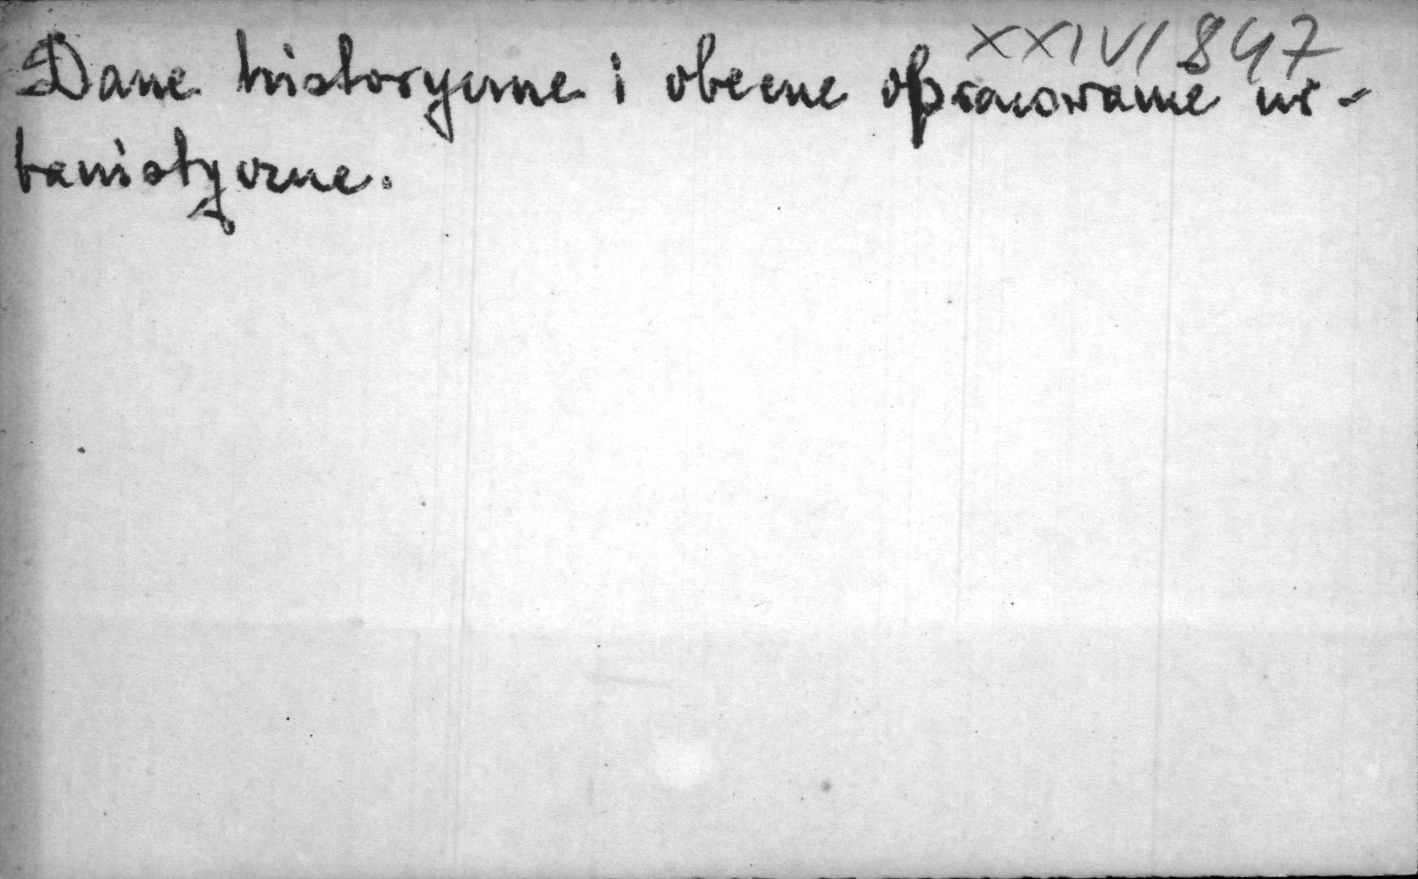 XXIV/847
Dane historyczne i obecne opracowanie ur-
banistyczne.